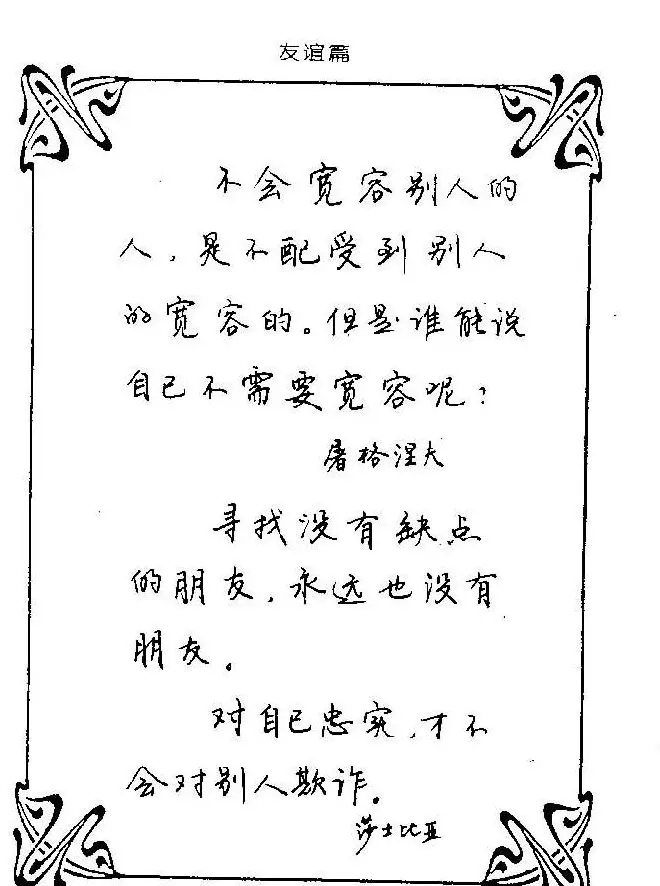 友谊篇
不会宽容别人的
人，是不配受到别人
的宽容的。但是谁能说
自己不需要宽容呢？
屠格涅夫
寻找没有缺点
的朋友，永远也没有
朋友。
对自己忠实，才不
会对别人欺诈。
莎士比亚